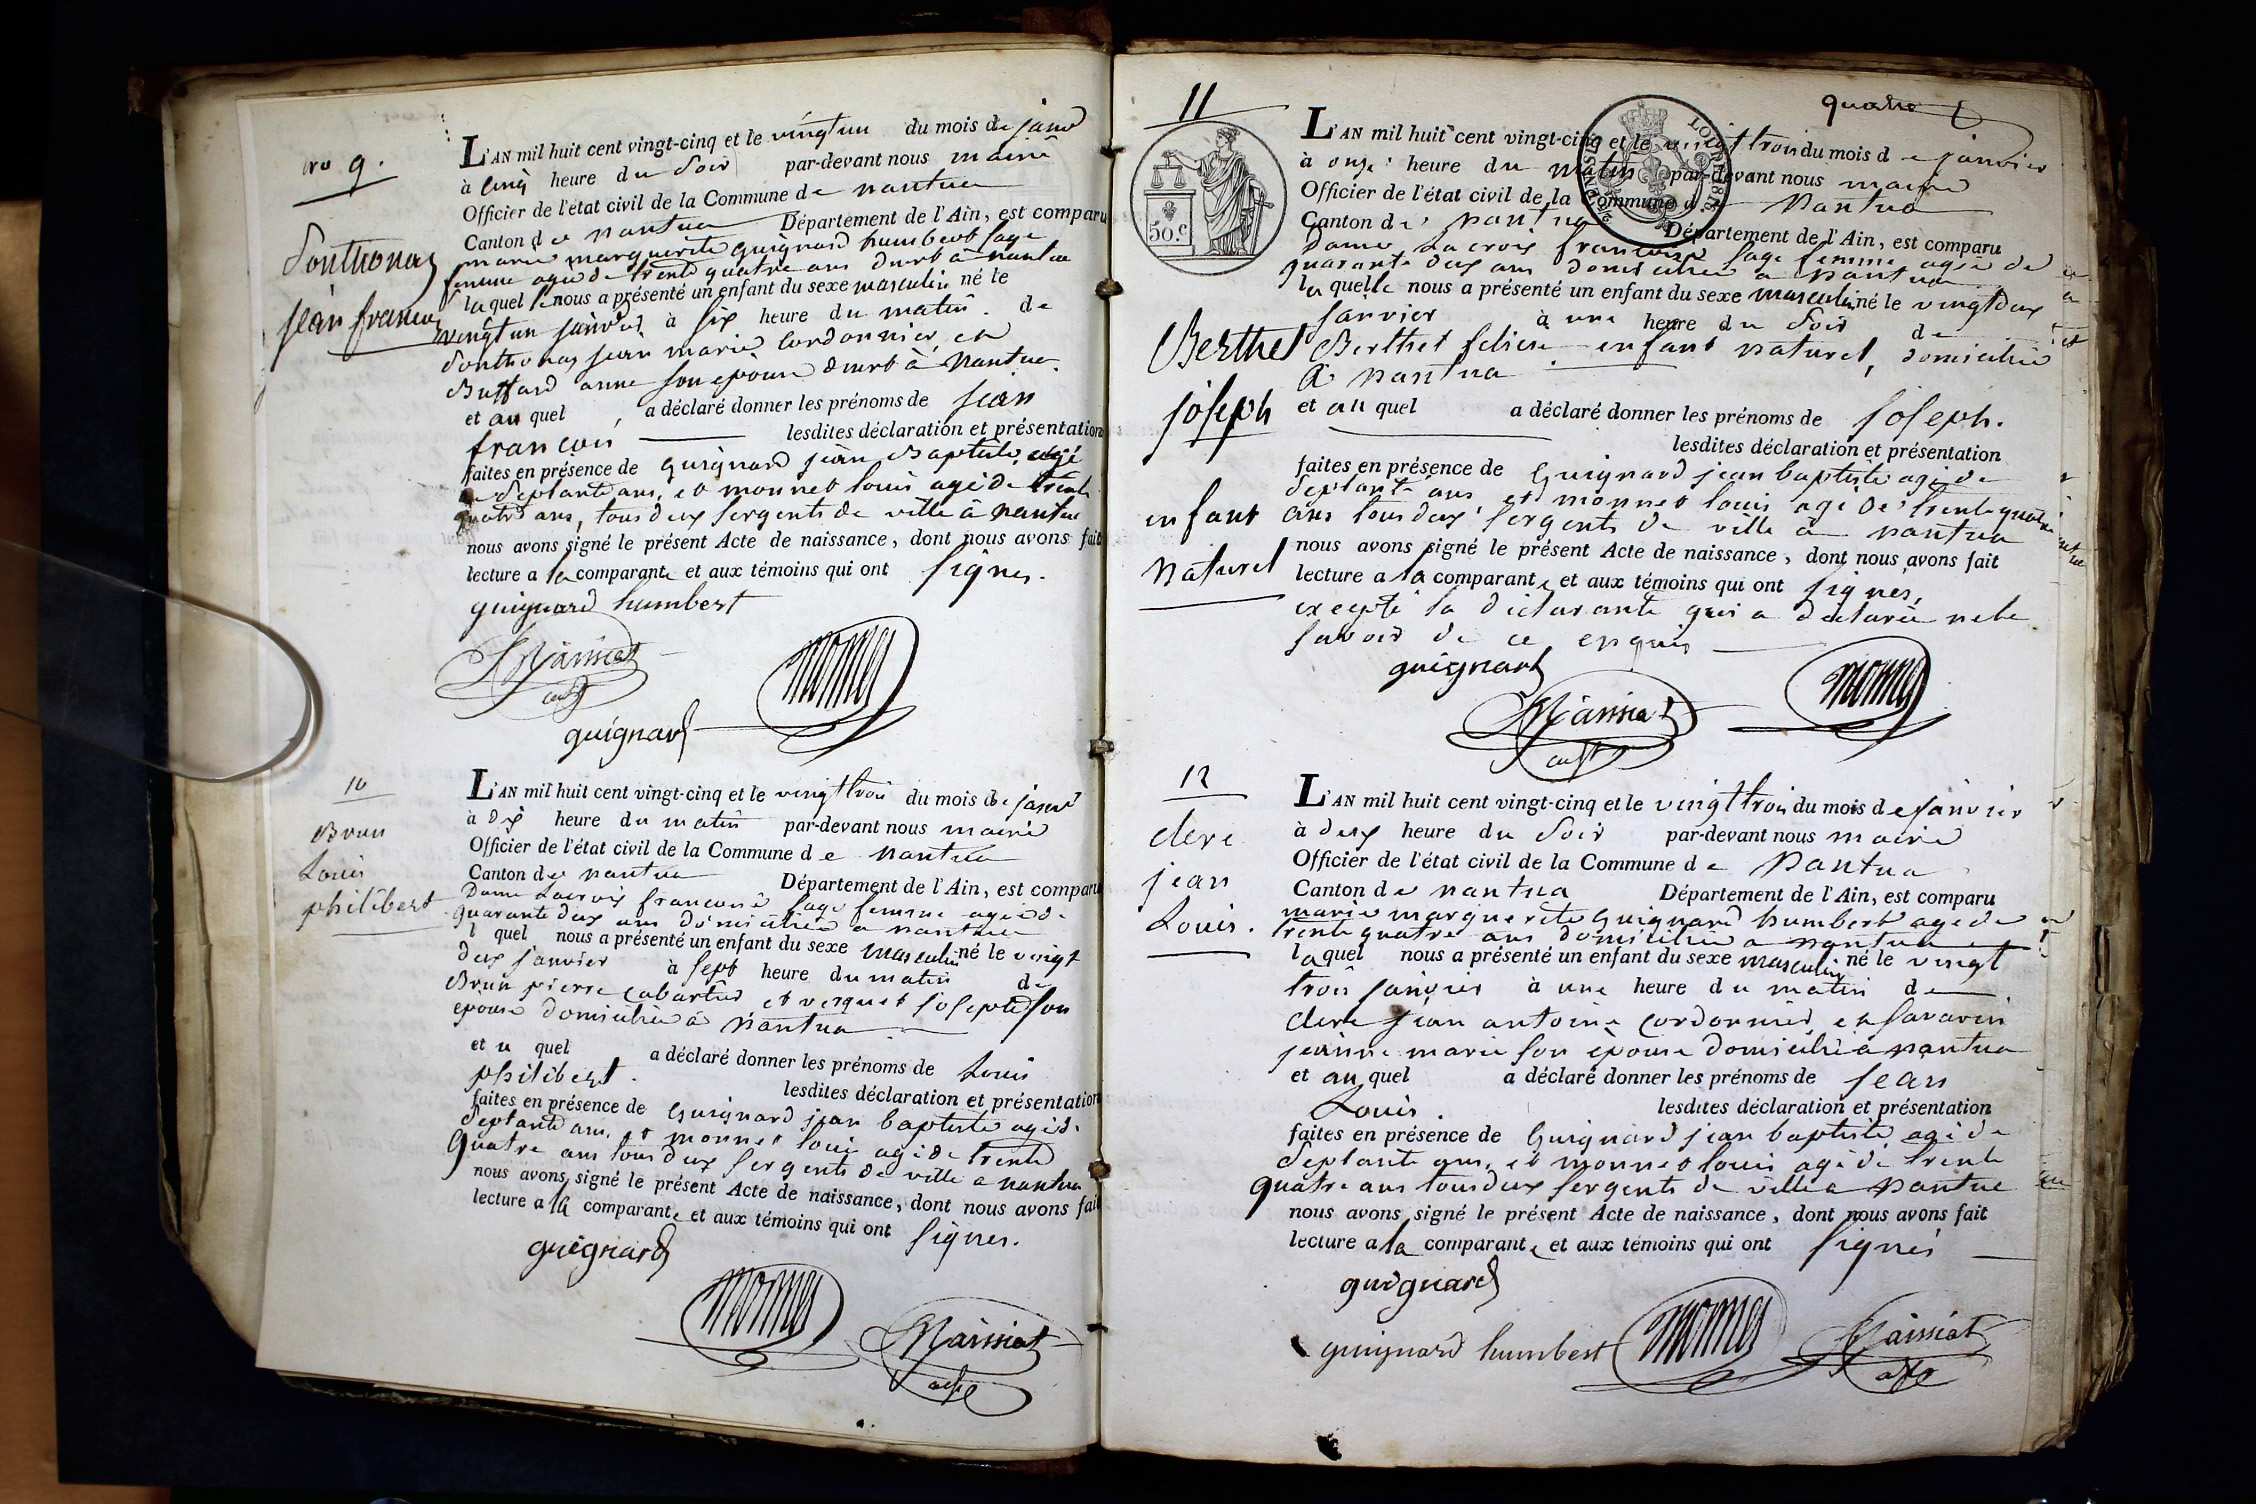 no 9.
Southonax
jean francois
L'AN mil huit cent vingt-cinq et le vingt un du mois de janv
à cinq heure du soir par-devant nous maire
Officier de l'état civil de la Commune de nantua
Canton de nantua Département de l'Ain, est comparu
marie marguerite guignard humbert sage
femme agée de trente quatre ans dmrt à nantua
laquelle nous a présenté un enfant du sexe masculin né le
vingt un janvier à six heure du matin. de
Southonax jean marie Cordonnier et
Buffard anne son epouse dmrt à Nantua.
et au quel a déclaré donner les prénoms de jean
francois lesdites déclaration et présentation
faites en présence de guignard jean Baptiste agé
de septante ans, et monnet louis agé de trente
quatre ans, tous deux sergents de ville à nantua
nous avons signé le présent Acte de naissance, dont nous avons fait
lecture a la comparante et aux témoins qui ont signes.
guignard humbert
Maissiat
adjt
monnet
guignard
10
Brun
Louis
philibert
L'AN mil huit cent vingt-cinq et le vingt trois du mois de janv
à dix heure du matin par-devant nous maire
Officier de l'état civil de la Commune de nantua
Canton de nantua Département de l'Ain, est comparu
Dame Lacroix francoise sage femme agée de
quarante deux ans domiciliée a nantua
l quel nous a présenté un enfant du sexe masculin né le vingt
deux janvier à sept heure du matin de
Brun pierre cabartier et verquet josepte son
epouse domiciliée à Nantua
et u quel a déclaré donner les prénoms de Louis
philibert. lesdites déclaration et présentation
faites en présence de Guignard jean baptiste agé de
septante ans, et monnet louis agé de trente
quatre ans tous deux sergents de ville a nantua
nous avons signé le présent Acte de naissance, dont nous avons fait
lecture a la comparante et aux témoins qui ont signes.
guignard
monnet
Maissiat
adjt
quatre
11
50.c
Berthet
joseph
enfant
naturel
L'AN mil huit cent vingt-cinq et le vingt trois du mois de janvier
à onze heure du matin par-devant nous maire
Officier de l'état civil de la Commune d Nantua
Canton de Nantua Département de l'Ain, est comparu
Dame Lacroix francoise sage femme agée de
quarante deux ans domiciliée a Nantua
laquelle nous a présenté un enfant du sexe masculin né le vingt deux
janvier à une heure du soir de
Berthet felicie enfant naturel, domiciliée
à Nantua
et au quel a déclaré donner les prénoms de joseph.
lesdites déclaration et présentation
faites en présence de Guignard jean baptiste agé de
septante ans et monnet louis agé de trente quatre
ans tous deux sergents de ville a nantua
nous avons signé le présent Acte de naissance, dont nous avons fait
lecture a la comparante et aux témoins qui ont signes,
excepté la déclarante qui a declarée ne le
savoir de ce enquis
guignard
Maissiat
adjt
monnet
12
clerc
jean
Louis.
L'AN mil huit cent vingt-cinq et le vingt trois du mois de janvier
à deux heure du soir par-devant nous maire
Officier de l'état civil de la Commune de Nantua
Canton de nantua Département de l'Ain, est comparu
marie marguerite Guignard humbert agée de
trente quatre ans domiciliée a nantua
laquel nous a présenté un enfant du sexe masculin né le vingt
trois janvier à une heure du matin de
clerc jean antoine Cordonnier et savarin
jeanne marie son epouse domicilié à nantua
et au quel a déclaré donner les prénoms de jean
Louis. lesdites déclaration et présentation
faites en présence de Guignard jean baptiste agé de
septante ans, et monnet louis agé de trente
quatre ans tous deux sergents de ville a Nantua
nous avons signé le présent Acte de naissance, dont nous avons fait
lecture a la comparante et aux témoins qui ont signés
guignard
guignard humbert
monnet
Maissiat
adjt